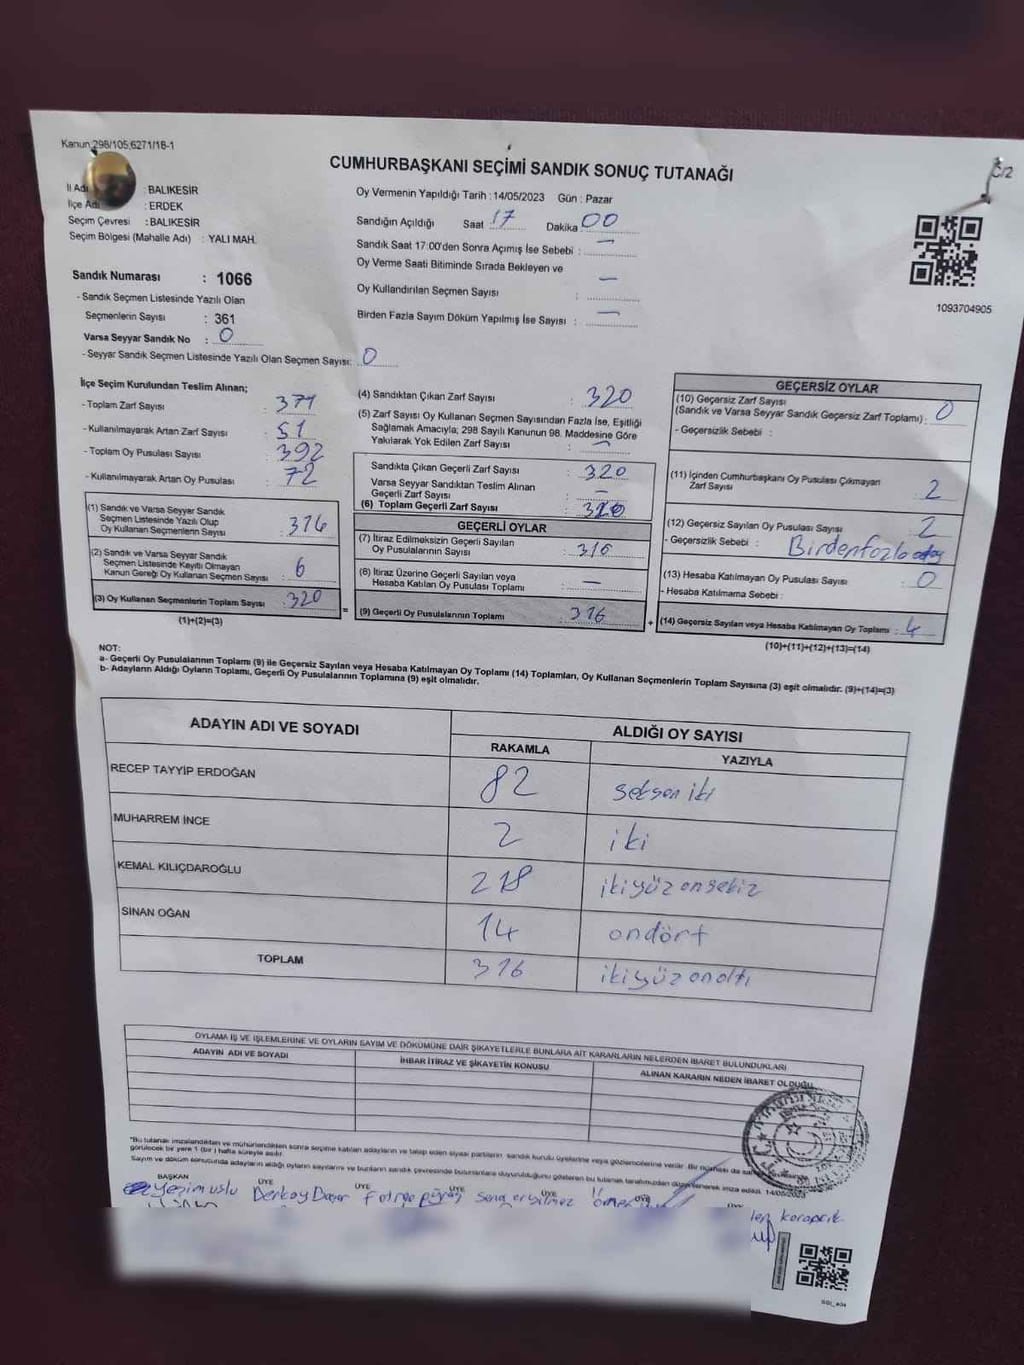 Kanun 298/105,6271/18-1
Ç/2
CUMHURBAŞKANI SEÇİMİ SANDIK SONUÇ TUTANAĞI
İl Adı : BALIKESİR
İlçe Adı : ERDEK
Seçim Çevresi : BALIKESİR
Seçim Bölgesi (Mahalle Adı) : YALI MAH.
Sandık Numarası : 1066
- Sandık Seçmen Listesinde Yazılı Olan
Seçmenlerin Sayısı : 361
Varsa Seyyar Sandık No : 0
- Seyyar Sandık Seçmen Listesinde Yazılı Olan Seçmen Sayısı: 0
Oy Vermenin Yapıldığı Tarih : 14/05/2023 Gün : Pazar
Sandığın Açıldığı Saat 17 Dakika 00
Sandık Saat 17:00'den Sonra Açımış İse Sebebi : —
Oy Verme Saati Bitiminde Sırada Bekleyen ve
Oy Kullandırılan Seçmen Sayısı : —
Birden Fazla Sayım Döküm Yapılmış İse Sayısı : —
1093704905
İlçe Seçim Kurulundan Teslim Alınan;
- Toplam Zarf Sayısı : 371
- Kullanılmayarak Artan Zarf Sayısı : 51
- Toplam Oy Pusulası Sayısı : 392
- Kullanılmayarak Artan Oy Pusulası : 72
(1) Sandık ve Varsa Seyyar Sandık
Seçmen Listesinde Yazılı Olup
Oy Kullanan Seçmenlerin Sayısı : 314
(2) Sandık ve Varsa Seyyar Sandık
Seçmen Listesinde Kayıtlı Olmayan
Kanun Gereği Oy Kullanan Seçmen Sayısı : 6
(3) Oy Kullanan Seçmenlerin Toplam Sayısı : 320
(1)+(2)=(3)
(4) Sandıktan Çıkan Zarf Sayısı : 320
(5) Zarf Sayısı Oy Kullanan Seçmen Sayısından Fazla İse, Eşitliği
Sağlamak Amacıyla; 298 Sayılı Kanunun 98. Maddesine Göre
Yakılarak Yok Edilen Zarf Sayısı : —
Sandıkta Çıkan Geçerli Zarf Sayısı : 320
Varsa Seyyar Sandıktan Teslim Alınan
Geçerli Zarf Sayısı : —
(6) Toplam Geçerli Zarf Sayısı : 320
GEÇERLİ OYLAR
(7) İtiraz Edilmeksizin Geçerli Sayılan
Oy Pusulalarının Sayısı : 316
(8) İtiraz Üzerine Geçerli Sayılan veya
Hesaba Katılan Oy Pusulası Toplamı : —
(9) Geçerli Oy Pusulalarının Toplamı : 316
GEÇERSİZ OYLAR
(10) Geçersiz Zarf Sayısı
(Sandık ve Varsa Seyyar Sandık Geçersiz Zarf Toplamı) : 0
- Geçersizlik Sebebi :
(11) İçinden Cumhurbaşkanı Oy Pusulası Çıkmayan
Zarf Sayısı : 2
(12) Geçersiz Sayılan Oy Pusulası Sayısı : 2
- Geçersizlik Sebebi : Birden fazla aday
(13) Hesaba Katılmayan Oy Pusulası Sayısı : 0
- Hesaba Katılmama Sebebi :
(14) Geçersiz Sayılan veya Hesaba Katılmayan Oy Toplamı : 4
(10)+(11)+(12)+(13)=(14)
NOT:
a- Geçerli Oy Pusulalarının Toplamı (9) ile Geçersiz Sayılan veya Hesaba Katılmayan Oy Toplamı (14) Toplamları, Oy Kullanan Seçmenlerin Toplam Sayısına (3) eşit olmalıdır. (9)+(14)=(3)
b- Adayların Aldığı Oyların Toplamı, Geçerli Oy Pusulalarının Toplamına (9) eşit olmalıdır.
ADAYIN ADI VE SOYADI ALDIĞI OY SAYISI
RAKAMLA YAZIYLA
RECEP TAYYİP ERDOĞAN 82 seksen iki
MUHARREM İNCE 2 iki
KEMAL KILIÇDAROĞLU 218 ikiyüz onsekiz
SİNAN OĞAN 14 ondört
TOPLAM 316 ikiyüz onaltı
OYLAMA İŞ VE İŞLEMLERİNE VE OYLARIN SAYIM VE DÖKÜMÜNE DAİR ŞİKAYETLERLE BUNLARA AİT KARARLARIN NELERDEN İBARET BULUNDUKLARI
ADAYIN ADI VE SOYADI İHBAR İTİRAZ VE ŞİKAYETİN KONUSU ALINAN KARARIN NEDEN İBARET OLDUĞU
*Bu tutanak imzalandıktan ve mühürlendikten sonra seçime katılan adayların ve talep eden siyasi partilerin sandık kurulu üyelerine veya gözlemcilerine verilir. Bir nüshası da
görülecek bir yere 1 (bir) hafta süreyle asılır.
Sayım ve döküm sonucunda adayların aldığı oyların sayılarını ve bunların sandık çevresinde bulunanlara duyurulduğunu gösteren bu tutanak tarafımızdan düzenlenerek imza edildi. 14/05/2023
BAŞKAN ÜYE ÜYE ÜYE ÜYE
Yeşim uslu